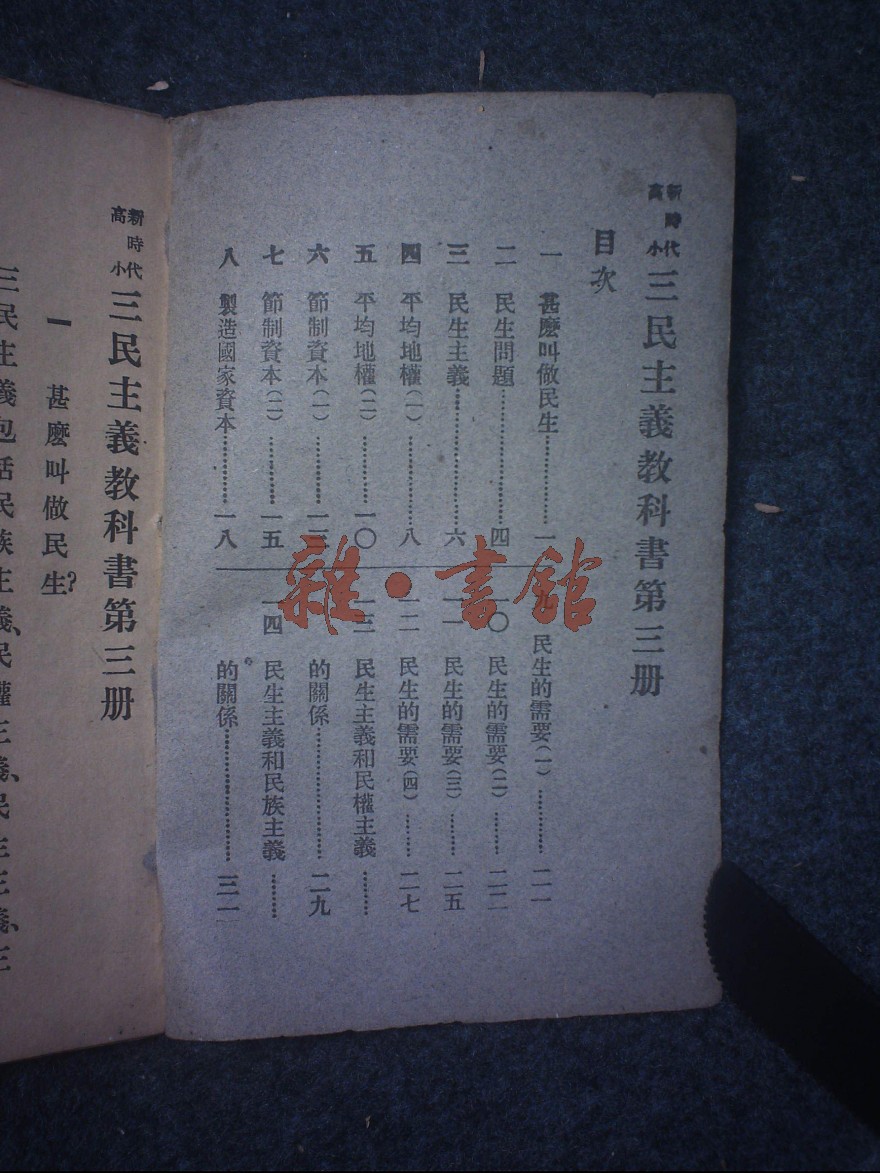 新時代高小 三民主義教科書第三册
目次
一 甚麽叫做民生……………一
二 民生問題……………四
三 民生主義……………六
四 平均地權(一)……………八
五 平均地權(二)……………一〇
六 節制資本(一)……………一三
七 節制資本(二)……………一五
八 製造國家資本……………一八
民生的需要(一)………二一
一〇 民生的需要(二)………二二
一一 民生的需要(三)………二五
一二 民生的需要(四)………二七
一三 民生主義和民權主義………
的關係……………二九
一四 民生主義和民族主義………
的關係……………三一
雜•書館
新時代高小 三民主義教科書第三册
一 甚麽叫做民生?
三民主義包括民族主義、民權主義、民生主義、三